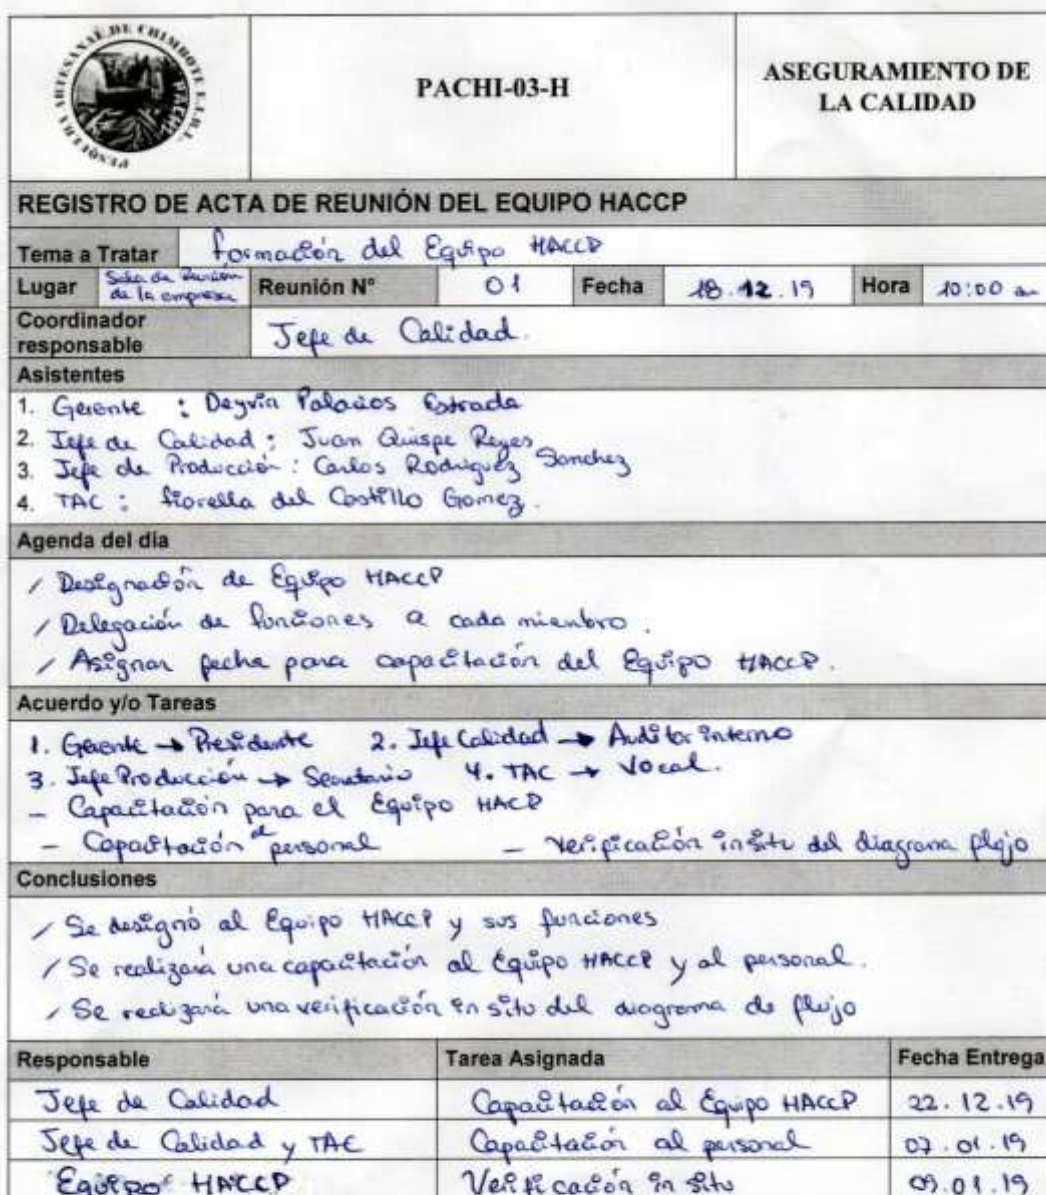 PESQUERA ARTESANAL DE CHIMBOTE E.I.R.L.
PACHI
PACHI-03-H
ASEGURAMIENTO DE
LA CALIDAD
REGISTRO DE ACTA DE REUNIÓN DEL EQUIPO HACCP
Tema a Tratar formación del Equipo HACCP
Lugar Sala de Reunión de la empresa Reunión N° 01 Fecha 18.12.19 Hora 10:00 am
Coordinador
responsable Jefe de Calidad.
Asistentes
1. Gerente : Deyvin Palacios Estrada
2. Jefe de Calidad : Juan Quispe Reyes
3. Jefe de Producción : Carlos Rodriguez Sanchez
4. TAC : fiorella del Castillo Gomez.
Agenda del día
/ Designación de Equipo HACCP
/ Delegación de funciones a cada miembro.
/ Asignar fecha para capacitación del Equipo HACCP.
Acuerdo y/o Tareas
1. Gerente → Presidente 2. Jefe Calidad → Auditor interno
3. Jefe Producción → Secretario 4. TAC → Vocal.
- Capacitación para el Equipo HACP
- Capacitación al personal - Verificación insitu del diagrama flujo
Conclusiones
/ Se designó al Equipo HACCP y sus funciones
/ Se realizará una capacitación al Equipo HACCP y al personal.
/ Se realizará una verificación in situ del diagrama de flujo
Responsable Tarea Asignada Fecha Entrega
Jefe de Calidad Capacitación al Equipo HACCP 22.12.19
Jefe de Calidad y TAC Capacitación al personal 07.01.19
Equipo HACCP Verificación in situ 09.01.19